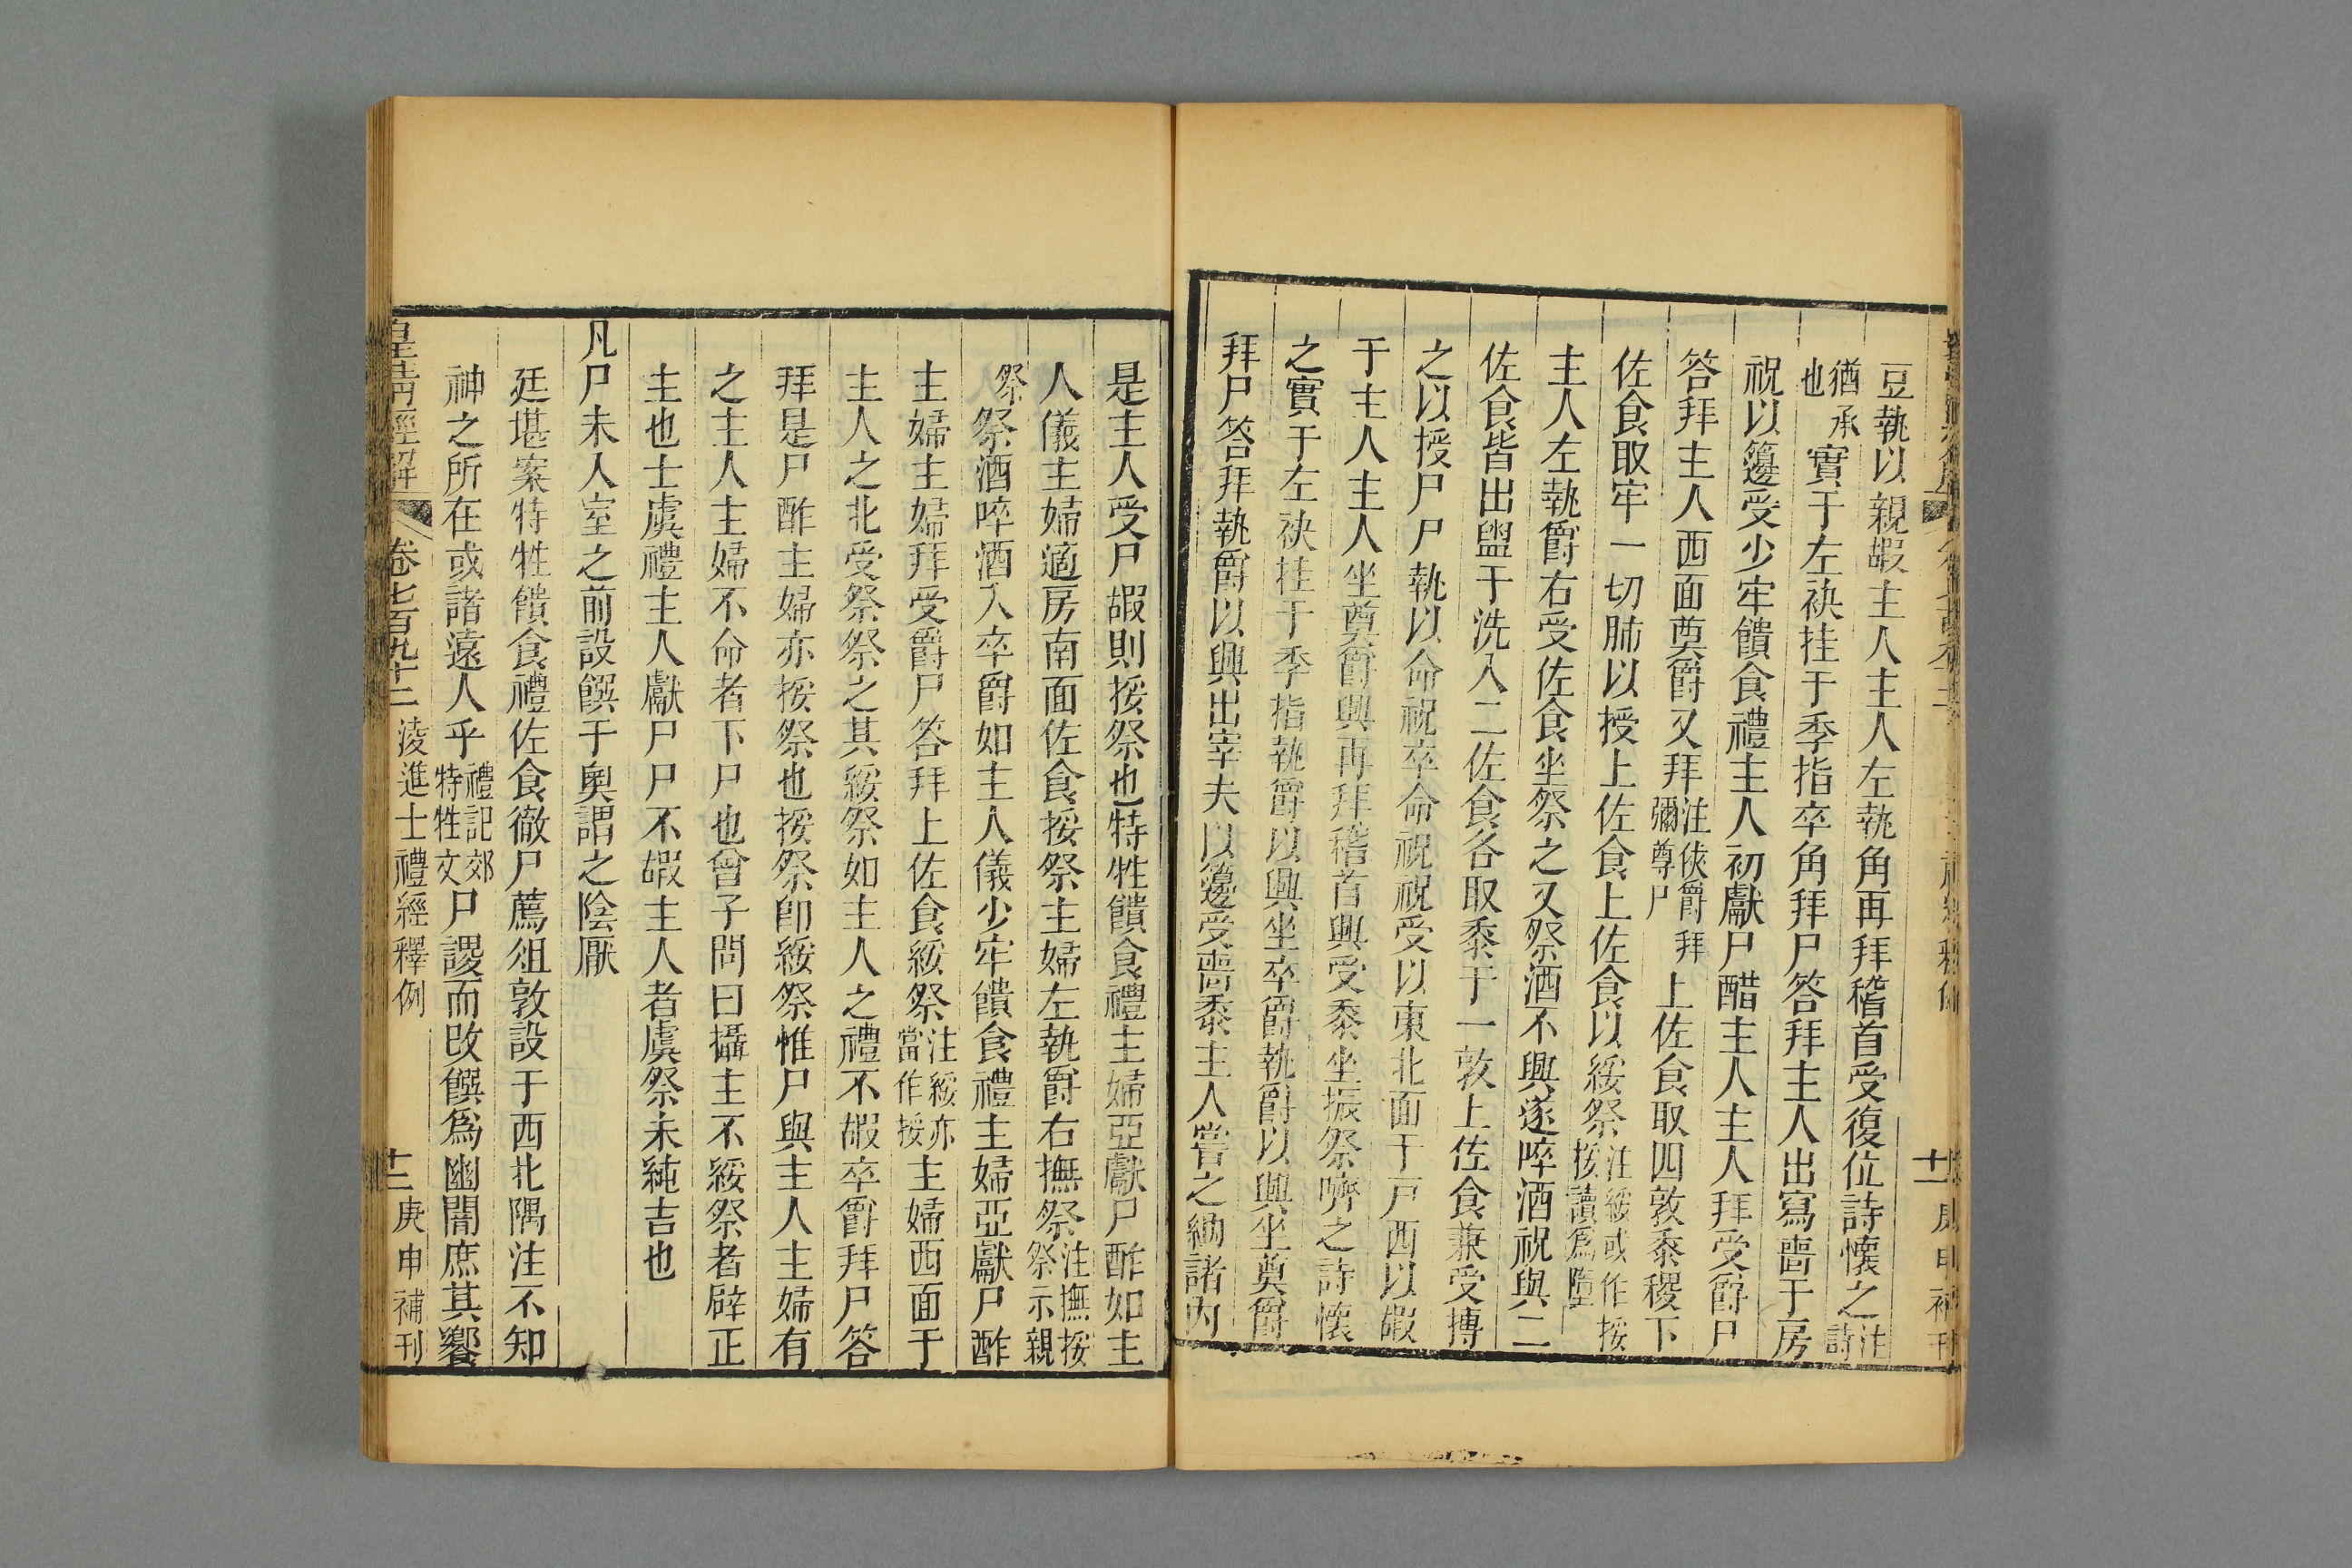 豆執以親嘏主人主人左執角再拜稽首受復位詩懷之注詩
猶承也實于左袂挂于季指卒角拜尸答拜主人出寫嗇于房
祝以籩受少牢饋食禮主人初獻尸醋主人主人拜受爵尸
答拜主人西面奠爵又拜注俠爵拜彌尊尸上佐食取四敦黍稷下
佐食取牢一切肺以授上佐食上佐食以綏祭注綏或作挼挼讀爲墮
主人左執爵右受佐食坐祭之又祭酒不興遂啐酒祝與二
佐食皆出盥于洗入二佐食各取黍于一敦上佐食兼受摶
之以授尸尸執以命祝卒命祝祝受以東北面于戸西以嘏
于主人主人坐奠爵興再拜稽首興受黍坐振祭嚌之詩懷
之實于左袂挂于季指執爵以興坐卒爵執爵以興坐奠爵
拜尸答拜執爵以興出宰夫以籩受嗇黍主人嘗之納諸內
是主人受尸嘏則挼祭也特牲饋食禮主婦亞獻尸酢如主
人儀主婦適房南面佐食挼祭主婦左執爵右撫祭注撫挼祭示親
祭祭酒啐酒入卒爵如主人儀少牢饋食禮主婦亞獻尸酢
主婦主婦拜受爵尸答拜上佐食綏祭注綏亦當作挼主婦西面于
主人之北受祭祭之其綏祭如主人之禮不嘏卒爵拜尸答
拜是尸酢主婦亦挼祭也挼祭卽綏祭惟尸與主人主婦有
之主人主婦不命者下尸也曾子問曰攝主不綏祭者辟正
主也士虞禮主人獻尸尸不嘏主人者虞祭未純吉也
凡尸未入室之前設饌于奧謂之陰厭
廷堪案特牲饋食禮佐食徹尸薦俎敦設于西北隅注不知
神之所在或諸遠人乎禮記郊特牲文尸謖而改饌爲幽闇庶其饗
皇清經解 卷七百九十二 淩進士禮經釋例 十二 庚申補刊